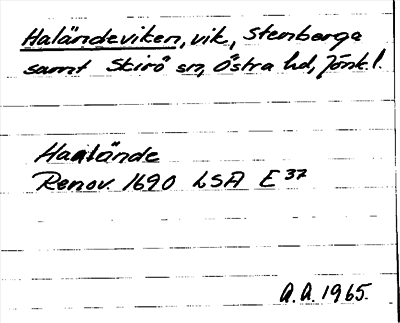 Haländeviken, vik, Stenberga
samt Skirö sn, Östra hd, Jönk. l.
Haalände
Renov. 1690 LSA E 37
A.A. 1965.